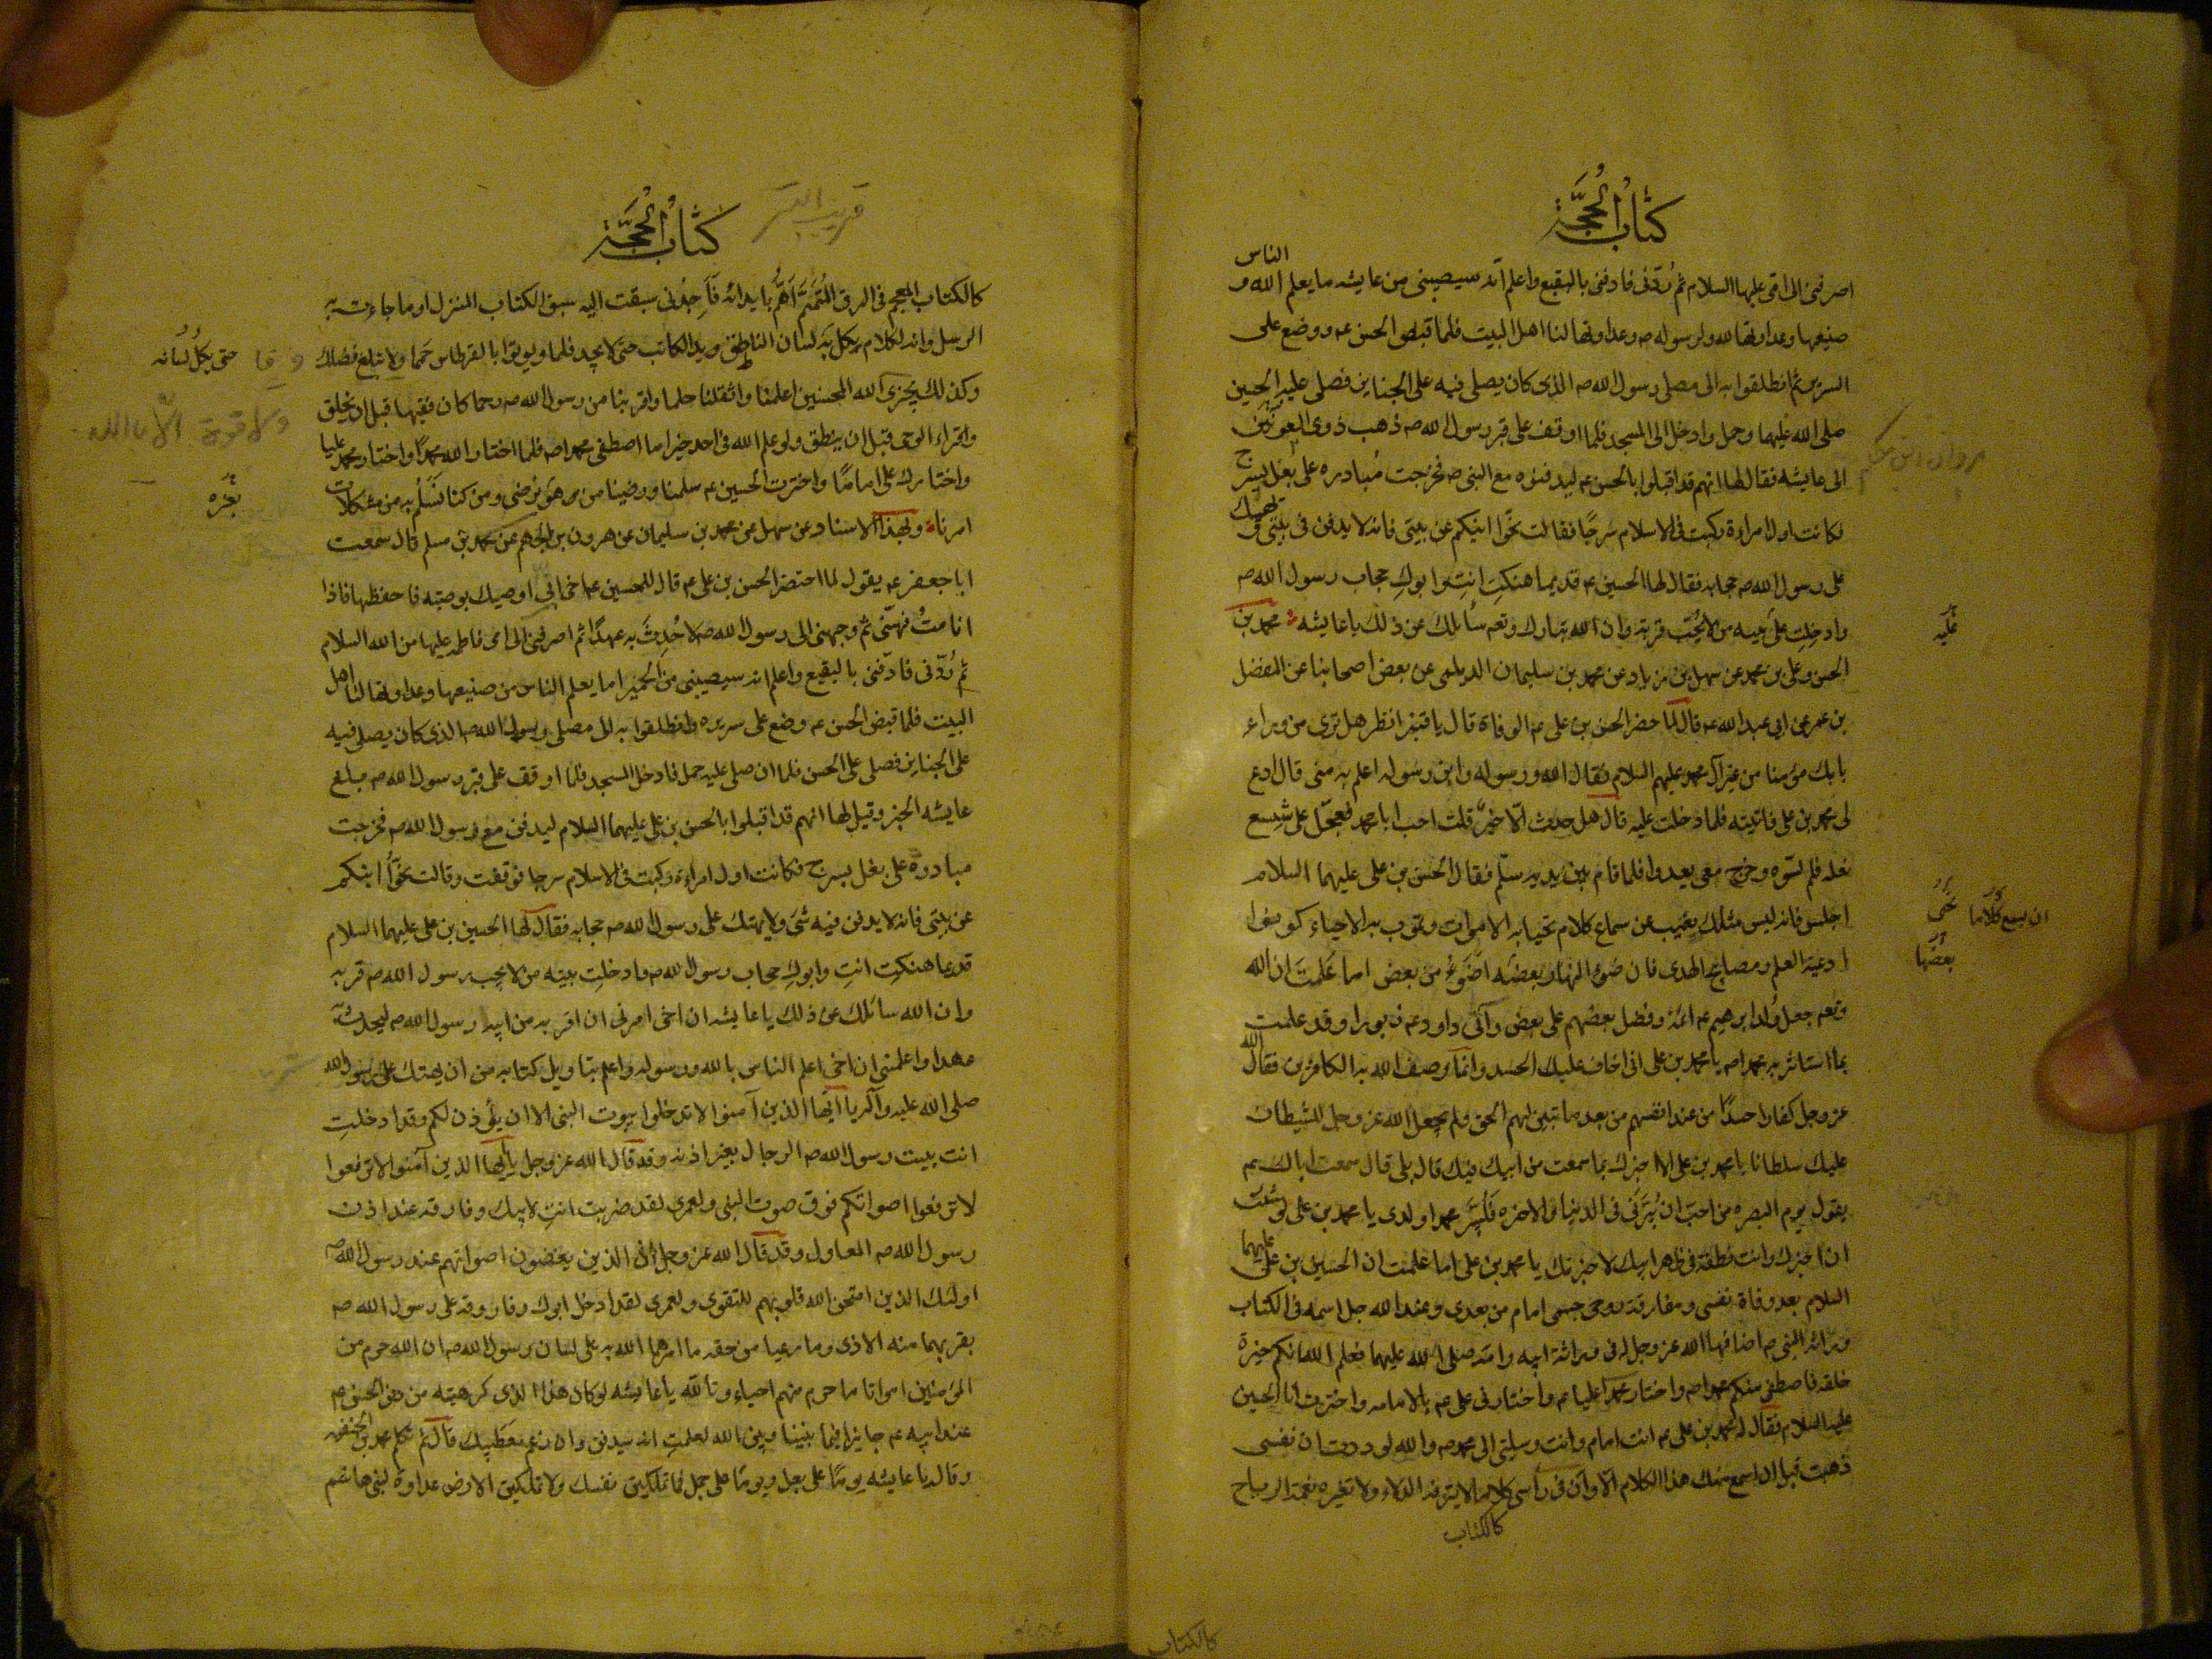 كتاب الحجة
الناس
اصرفنى الى امى عليها السلام ثم ردنى فادفنى بالبقيع واعلم انه سيصيبنى من عايشه ما يعلم الله و
صنيعها وعداوتها لله ولرسوله صه وعداوتها لنا اهل البيت فلما قبض الحسن عه ووضع على
السرير ثم انطلقوا به الى مصلى رسول الله صه الذى كان يصلى فيه على الجنايز فصلى عليه الحسين
صلى الله عليهما وحمل وادخل الى المسجد فلما اوقف على قبر رسول الله صه ذهب ذوى العوينين
الى عايشه فقال لها انهم قد اقبلوا بالحسن عه ليدفنوه مع النبى صه فخرجت مبادره على بغل بسرج
فكانت اول امراءة ركبت فى الاسلام سرجا فقالت نحوا ابنكم عن بيتى فانه لا يدفن فى بيتى و تهتك
على رسول الله صه حجابه فقال لها الحسين عه قديما هتكت انت وابوك حجاب رسول الله صه
وادخلت عليه بيته من لا يحب قربه وان الله تبارك وتعه سائلك عن ذلك يا عايشه محمد بن
عليه
الحسن وعلى بن محمد عن سهل بن زياد عن محمد بن سليمان الديلمى عن بعض اصحابنا عن المفضل
بن عمر عن ابى عبد الله عه قال لما حضر الحسن بن على عه الوفاة قال يا قنبر انظر هل ترى من وراء
بابك مؤمنا من غير آل محمد عليهم السلام فقال الله ورسوله وابن رسوله اعلم به منى قال ادع
لى محمد بن على فاتيته فلما دخلت عليه قال هل حدث الا خير قلت اجب ابا محمد فعجل على شسع
نعله فلم يسوه وخرج معى يعدوا فلما قام بين يديه سلم فقال الحسن بن على عليهما السلام
اجلس فانه ليس مثلك يغيب عن سماع كلام تحيا به الاموات وتموت به الاحياء كونوا
ان يسمع كلاما
ادعية العلم ومصابيح الهدى فان ضوء النهار بعضه اضوء من بعض اما علمت ان الله
بعضها
وتعه جعل ولد ابرهيم عه ائمة وفضل بعضهم على بعض وآتى داود عه زبورا وقد علمت
بما استاثر به محمدا صه يا محمد بن على انى اخاف عليك الحسد وانما وصف الله به الكافرين فقال الله
عز وجل كفارا حسدا من عند انفسهم من بعد ما تبين لهم الحق ولم يجعل الله عز وجل للشيطان
عليك سلطانا يا محمد بن على الا اخبرك بما سمعت من ابيك فيك قال بلى قال سمعت اباك عه
يقول يوم البصره من احب ان يبرنى فى الدنيا والاخره فليبر محمدا ولدى يا محمد بن على لو شئت
ان اخبرك وانت نطفة فى ظهر ابيك لاخبرتك يا محمد بن على اما علمت ان الحسين بن على عليهما
السلام بعد وفاة نفسى ومفارقة روحى جسمى امام من بعدى وعند الله جل اسمه فى الكتاب
وراثة النبى صه اضافها الله عز وجل له فى وراثة ابيه وامه صلى الله عليهما فعلم الله انكم خيرة
خلقه فاصطفى منكم محمدا صه واختار محمد عليا عه واختارنى على عه بالامامه واخترت انا الحسين
عليه السلام فقال له محمد بن على عه انت امام وانت وسيلتى الى محمد صه والله لوددت ان نفسى
ذهبت قبل ان اسمع منك هذا الكلام الا وان فى رأسى كلاما لا تنزفه الدلاء ولا تغيره نغمة الرياح
كالكتاب
كالكتاب
كتاب الحجة
كالكتاب المعجم فى الرق المنمنم اهم بابدائه فاجدنى سبقت اليه سبق الكتاب المنزل او ما جاءت به
الرسل وانه لكلام يكل به لسان الناطق ويد الكاتب حتى لا يجد قلما ويوتوا بالقرطاس حمما ولا يبلغ فضلك
حتى يكل لسانه
وكذلك يجزى الله المحسنين اعلمنا واثقلنا حلما واقربنا من رسول الله صه رحما كان فقيها قبل ان يخلق
ولا قوة الا بالله
وقراء الوحى قبل ان ينطق ولو علم الله فى احد خيرا ما اصطفى محمدا صه فلما اختار الله محمدا واختار محمد عليا
واختارك على اماما واخترت الحسين عه سلمنا ورضينا من هو يرضى ومن كنا نسلم به من مشكلات
بغيره
امرنا وبهذا الاسناد عن سهل عن محمد بن سليمان عن هرون بن الجهم عن محمد بن مسلم قال سمعت
ابا جعفر عه يقول لما احتضر الحسن بن على عه قال للحسين عه اخى انى اوصيك بوصيه فاحفظها فاذا
انا مت فهيئنى ثم وجهنى الى رسول الله صه لاحدث به عهدا ثم اصرفنى الى امى فاطمه عليها من الله السلام
ثم ردنى فادفنى بالبقيع واعلم انه سيصيبنى من الحميرا ما يعلم الناس من صنيعها وعداوتها لنا اهل
البيت فلما قبض الحسن عه وضع على سريره وانطلقوا به الى مصلى رسول الله صه الذى كان يصلى فيه
على الجنايز فصلى على الحسن فلما ان صلى عليه حمل فادخل المسجد فلما اوقف على قبر رسول الله صه مبلغ
عايشه الخبر وقيل لها انهم قد اقبلوا بالحسن بن على عليهما السلام ليدفن مع رسول الله صه فخرجت
مبادرة على بغل بسرج فكانت اول امراءة ركبت فى الاسلام سرجا فوقفت وقالت نحوا ابنكم
عن بيتى فانه لا يدفن فيه شى ولا يهتك على رسول الله صه حجابه فقال لها الحسين بن على عليهما السلام
قديما هتكت انت وابوك حجاب رسول الله صه وادخلت بيته من لا يحب رسول الله صه قربه
وان الله سائلك عن ذلك يا عايشه ان اخى امرنى ان اقربه من ابيه رسول الله صه ليحدث به
عهدا واعلمى ان اخى اعلم الناس بالله ورسوله واعلم بتاويل كتابه من ان يهتك على رسول الله
صلى الله عليه وآله يا ايها الذين آمنوا لا تدخلوا بيوت النبى الا ان يؤذن لكم وقد ادخلت
انت بيت رسول الله صه الرجال بغير اذنه وقد قال الله عز وجل يا ايها الذين آمنوا لا ترفعوا
لا ترفعوا اصواتكم فوق صوت النبى ولعمرى لقد ضربت انت لابيك وفاروقه عند اذن
رسول الله صه المعاول وقد قال الله عز وجل ان الذين يغضون اصواتهم عند رسول الله صه
اولئك الذين امتحن الله قلوبهم للتقوى ولعمرى لقد ادخل ابوك وفاروقه على رسول الله صه
بقربهما منه الاذى وما رعيا من حقه ما امرهما الله به على لسان رسول الله صه ان الله حرم من
المؤمنين امواتا ما حرم منهم احياء وتالله يا عايشه لو كان هذا الذى كرهتيه من دفن الحسن عه
عند ابيه عه جايزا فيما بيننا وبين الله لعلمت انه سيدفن وان رغم معطسك قال ثم تكلم محمد بن الحنفيه
وقال يا عايشه يوما على بغل ويوما على جمل فما تملكين نفسك ولا تملكين الارض عداوة لبنى هاشم